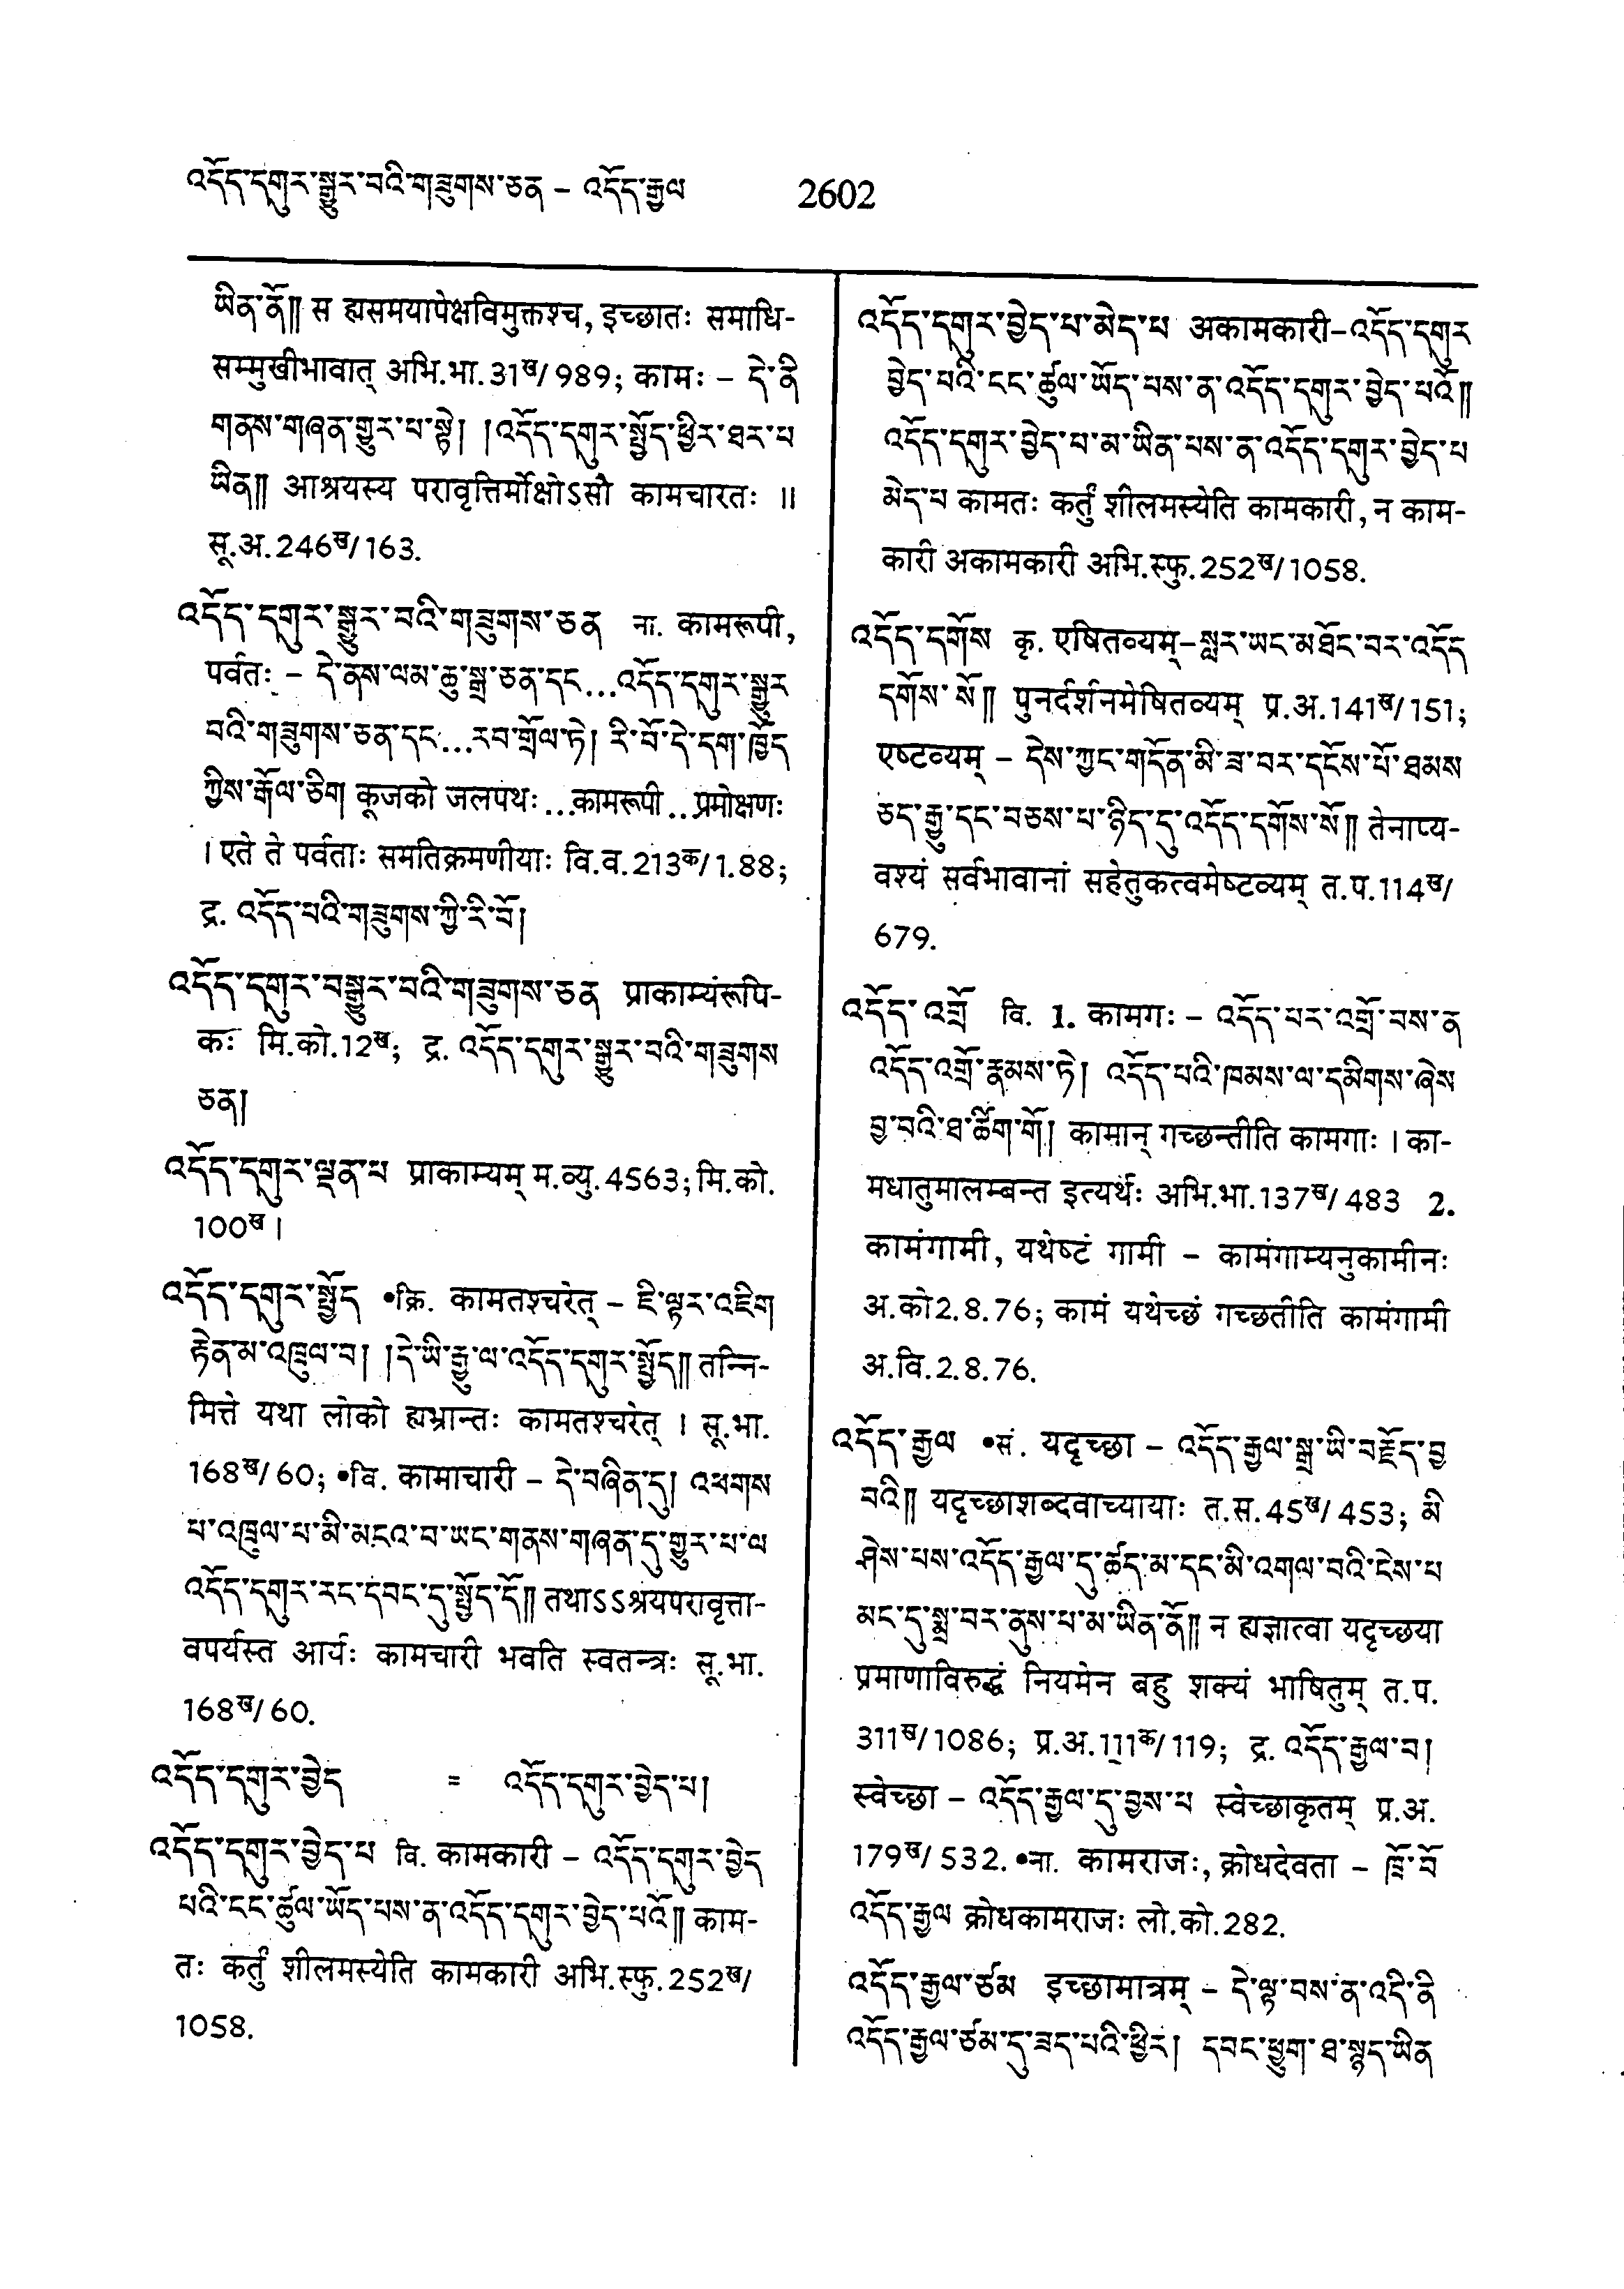 འདོད་དགུར་སྒྱུར་བའི་གཟུགས་ཅན – འདོད་རྒྱལ
2602
ཡིན་ནོ༎ स ह्यसमयापेक्षविमुक्तश्च, इच्छातः समाधि-
सम्मुखीभावात् अभि.भा.31ख/989; कामः – དེ་ནི
གནས་གཞན་གྱུར་པ་སྟེ། །འདོད་དགུར་སྤྱོད་ཕྱིར་ཐར་པ
ཡིན༎ आश्रयस्य परावृत्तिर्मोक्षोऽसौ कामचारतः ॥
सू.अ.246ख/163.
འདོད་དགུར་སྒྱུར་བའི་གཟུགས་ཅན ना. कामरूपी,
पर्वतः – དེ་ནས་ལམ་ཆུ་སྒྲ་ཅན་དང...འདོད་དགུར་སྒྱུར
བའི་གཟུགས་ཅན་དང...རབ་གྲོལ་ཏེ། རི་བོ་དེ་དག་ཁྱོད
ཀྱིས་རྒོལ་ཅིག कूजको जलपथः...कामरूपी...प्रमोक्षणः
। एते ते पर्वताः समतिक्रमणीयाः वि.व.213क/1.88;
द्र. འདོད་པའི་གཟུགས་ཀྱི་རི་བོ།
འདོད་དགུར་བསྒྱུར་བའི་གཟུགས་ཅན प्राकाम्यंरूपि-
कः मि.को.12ख; द्र. འདོད་དགུར་སྒྱུར་བའི་གཟུགས
ཅན།
འདོད་དགུར་ལྡན་པ प्राकाम्यम् म.व्यु.4563; मि.को.
100ख।
འདོད་དགུར་སྤྱོད •क्रि. कामतश्चरेत् – ཇི་ལྟར་འཇིག
རྟེན་མ་འཁྲུལ་བ། །དེ་ཡི་རྒྱུ་ལ་འདོད་དགུར་སྤྱོད༎ तन्नि-
मित्ते यथा लोको ह्यभ्रान्तः कामतश्चरेत् । सू.भा.
168ख/60; •वि. कामाचारी – དེ་བཞིན་དུ། འཕགས
པ་འཁྲུལ་པ་མི་མངའ་བ་ཡང་གནས་གཞན་དུ་གྱུར་པ་ལ
འདོད་དགུར་རང་དབང་དུ་སྤྱོད་དོ༎ तथाऽऽश्रयपरावृत्ता-
वपर्यस्त आर्यः कामचारी भवति स्वतन्त्रः सू.भा.
168ख/60.
འདོད་དགུར་བྱེད = འདོད་དགུར་བྱེད་པ།
འདོད་དགུར་བྱེད་པ वि. कामकारी – འདོད་དགུར་བྱེད
པའི་ངང་ཚུལ་ཡོད་པས་ན་འདོད་དགུར་བྱེད་པའོ༎ काम-
तः कर्तुं शीलमस्येति कामकारी अभि.स्फु.252ख/
1058.
འདོད་དགུར་བྱེད་པ་མེད་པ अकामकारी–འདོད་དགུར
བྱེད་པའི་ངང་ཚུལ་ཡོད་པས་ན་འདོད་དགུར་བྱེད་པའོ༎
འདོད་དགུར་བྱེད་པ་མ་ཡིན་པས་ན་འདོད་དགུར་བྱེད་པ
མེད་པ कामतः कर्तुं शीलमस्येति कामकारी, न काम-
कारी अकामकारी अभि.स्फु.252ख/1058.
འདོད་དགོས कृ. एषितव्यम्–སླར་ཡང་མཐོང་བར་འདོད
དགོས་སོ༎ पुनर्दर्शनमेषितव्यम् प्र.अ.141ख/151;
एष्टव्यम् – དེས་ཀྱང་གདོན་མི་ཟ་བར་དངོས་པོ་ཐམས
ཅད་རྒྱུ་དང་བཅས་པ་ཉིད་དུ་འདོད་དགོས་སོ༎ तेनाप्य-
वश्यं सर्वभावानां सहेतुकत्वमेष्टव्यम् त.प.114ख/
679.
འདོད་འགྲོ वि. 1. कामगः – འདོད་པར་འགྲོ་བས་ན
འདོད་འགྲོ་རྣམས་ཏེ། འདོད་པའི་ཁམས་ལ་དམིགས་ཞེས
བྱ་བའི་ཐ་ཚིག་གོ། कामान् गच्छन्तीति कामगाः । का-
मधातुमालम्बन्त इत्यर्थः अभि.भा.137ख/483 2.
कामंगामी, यथेष्टं गामी – कामंगाम्यनुकामीनः
अ.को2.8.76; कामं यथेच्छं गच्छतीति कामंगामी
अ.वि.2.8.76.
འདོད་རྒྱལ •सं. यदृच्छा – འདོད་རྒྱལ་སྒྲ་ཡི་བརྗོད་བྱ
བའི༎ यदृच्छाशब्दवाच्यायाः त.स.45ख/453; མི
ཤེས་པས་འདོད་རྒྱལ་དུ་ཚད་མ་དང་མི་འགལ་བའི་ངེས་པ
མང་དུ་སྨྲ་བར་ནུས་པ་མ་ཡིན་ནོ༎ न ह्यज्ञात्वा यदृच्छया
प्रमाणाविरुद्धं नियमेन बहु शक्यं भाषितुम् त.प.
311ख/1086; प्र.अ.111क/119; द्र. འདོད་རྒྱལ་བ།
स्वेच्छा – འདོད་རྒྱལ་དུ་བྱས་པ स्वेच्छाकृतम् प्र.अ.
179ख/532. •ना. कामराजः, क्रोधदेवता – ཁྲོ་བོ
འདོད་རྒྱལ क्रोधकामराजः लो.को.282.
འདོད་རྒྱལ་ཙམ इच्छामात्रम् – དེ་ལྟ་བས་ན་འདི་ནི
འདོད་རྒྱལ་ཙམ་དུ་ཟད་པའི་ཕྱིར། དབང་ཕྱུག་ཐ་སྙད་ཡིན